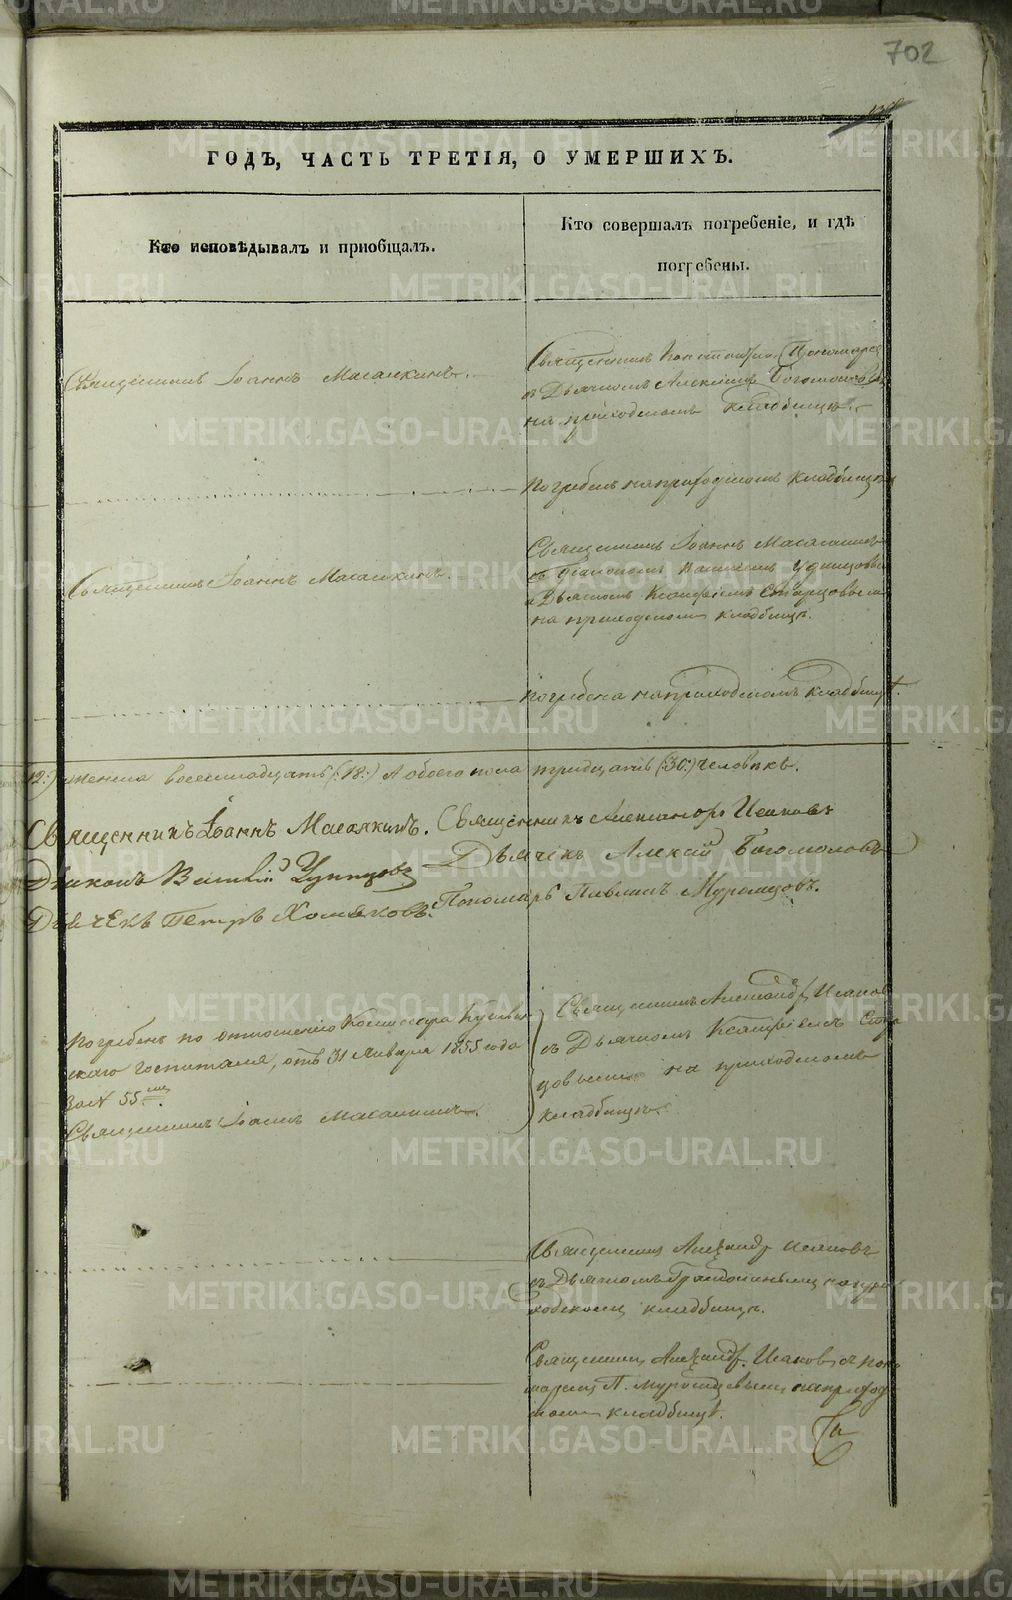 702
ГОДЪ, ЧАСТЬ ТРЕТІЯ, О УМЕРШИХЪ.
Кто исповѣдывалъ и пріобщалъ.
Кто совершалъ погребеніе, и гдѣ
погребены.
Священникъ Іоаннъ Масалкинъ.
Священникъ
съ Дьячкомъ Алексіемъ
на приходскомъ кладбищѣ.
Погребенъ на приходскомъ кладбищѣ
Священникъ Іоаннъ Масалкинъ.
Священникъ Іоаннъ Масалкинъ
съ Діакономъ
и Дьячкомъ Старцовымъ
на приходскомъ кладбищѣ.
Погребена на приходскомъ кладбищѣ.
12:) женска восемнадцать (:18:) А обоего пола тридцать (:30:) человѣкъ.
Священникъ Іоаннъ Масалкинъ.
Діаконъ Василій
Дьячекъ Петръ Хомяковъ.
Священникъ Александръ Исаковъ
Дьячекъ Алексій Богомоловъ
Пономарь Павлинъ Муромцовъ.
Погребенъ по отношенію Коммисара
скаго госпиталя, отъ 31 Января 1855 года
за № 55
Священникъ Іоаннъ Масалкинъ.
Священникъ Александръ Исаковъ
съ Дьячкомъ
цовымъ на приходскомъ
кладбищѣ.
Священникъ Александръ Исаковъ
съ Дьячкомъ на прих
одскомъ кладбищѣ.
Священникъ Александръ Исаковъ съ поно
марем П. Муромцевымъ на приход
скомъ кладбищѣ.
METRIKI.GASO-URAL.RU